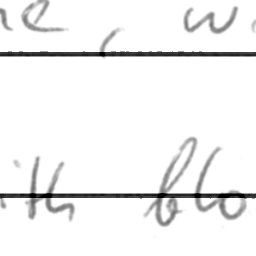 ne, w
ith blo